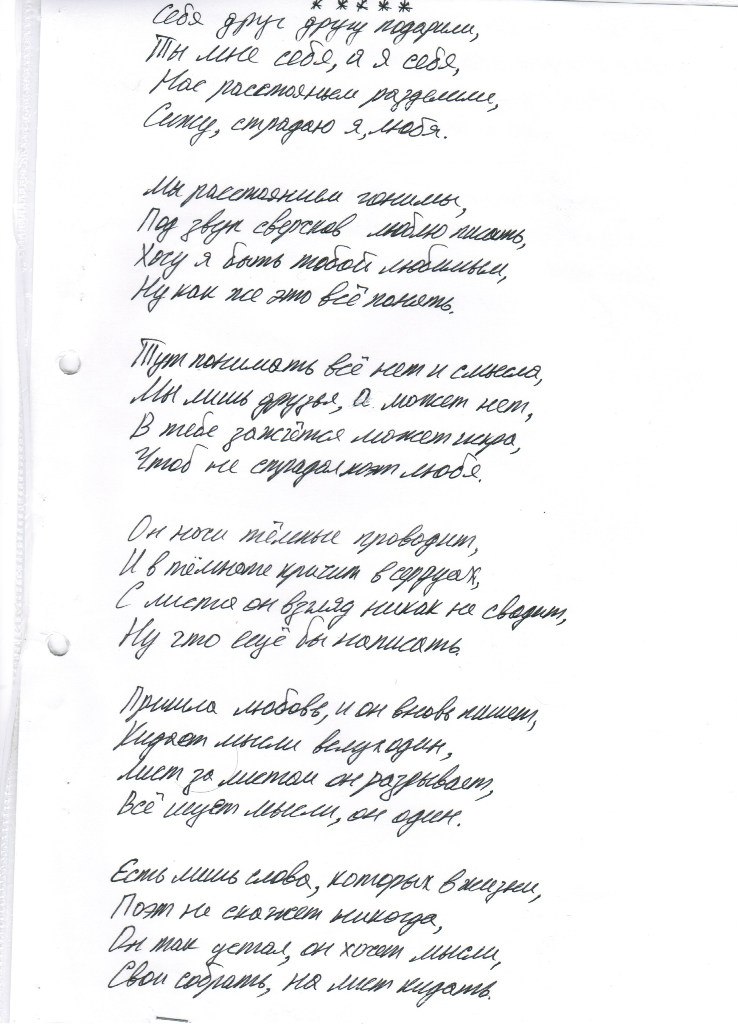 * * * * *
Себя друг другу подарили,
Ты мне себя, а я себя,
Нас расстояньем разделили,
Сижу, страдаю я, любя.
Мы расстоянием гонимы,
Под звук сверчков люблю писать,
Хочу я быть тобой любимым,
Ну как же это всё понять.
Тут понимать всё нет и смысла,
Мы лишь друзья, а может нет,
В тебе зажётся может искра,
Чтоб не страдал поэт любя.
Он ночи тёмные проводит,
И в темноте кричит в сердцах,
С листа он взгляд никак не сводит,
Ну что ещё бы написать.
Пришла любовь, и он вновь пишет,
Кидает мысли вслух один,
Лист за листом он разрывает,
Всё ищет мысли, он один.
Есть лишь слова, которых в жизни,
Поэт не скажет никогда,
Он так устал, он хочет мысли,
Свои собрать, на лист кидать.